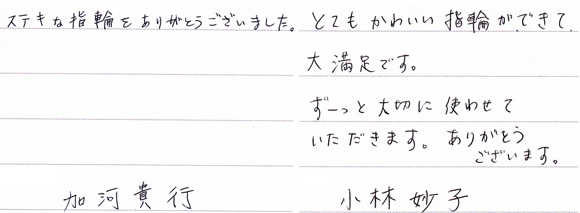 ステキな指輪をありがとうございました。
加河貴行
とてもかわいい指輪ができて
大満足です。
ずーっと大切に使わせて
いただきます。ありがとう
ございます。
小林妙子